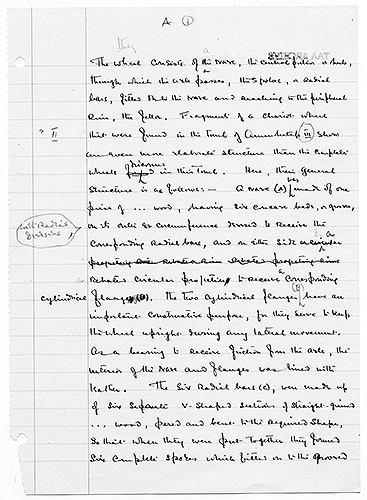 A ①
they
The wheel consists of a the Nave, the central portion or hub,
through which the axle passes, the spokes, or radial
bars, fitted into the nave and reaching to the peripheral
Rim, the felloe. Fragment of a Chariot wheel
" II that were found in the tomb of Amenhetep III show
an even more elaborate structure than the complete
wheels found discovered in this tomb. Here, their General
Structure is as follows:— A nave (A) was made of one
piece of ... wood, having six concave beds, or grooves,
with Radial divisions,
on its outer circumference dressed to receive the
corresponding Radial bars, and on either side a circular
projecting
Rebated circular projecting to receive a corresponding
cylindrical flange (B). The two cylindrical flanges (B) have an
important constructive purpose, for they serve to keep
the wheel upright during any lateral movement.
As a bearing to receive friction from the axle, the
interior of the nave and flanges was lined with
leather. The six Radial bars (C), were made up
of six separate V-shaped sections of straight-grained
... wood, pared and bent to the required shape,
so that when they were put together they formed
six complete spokes which fitted on to the grooved